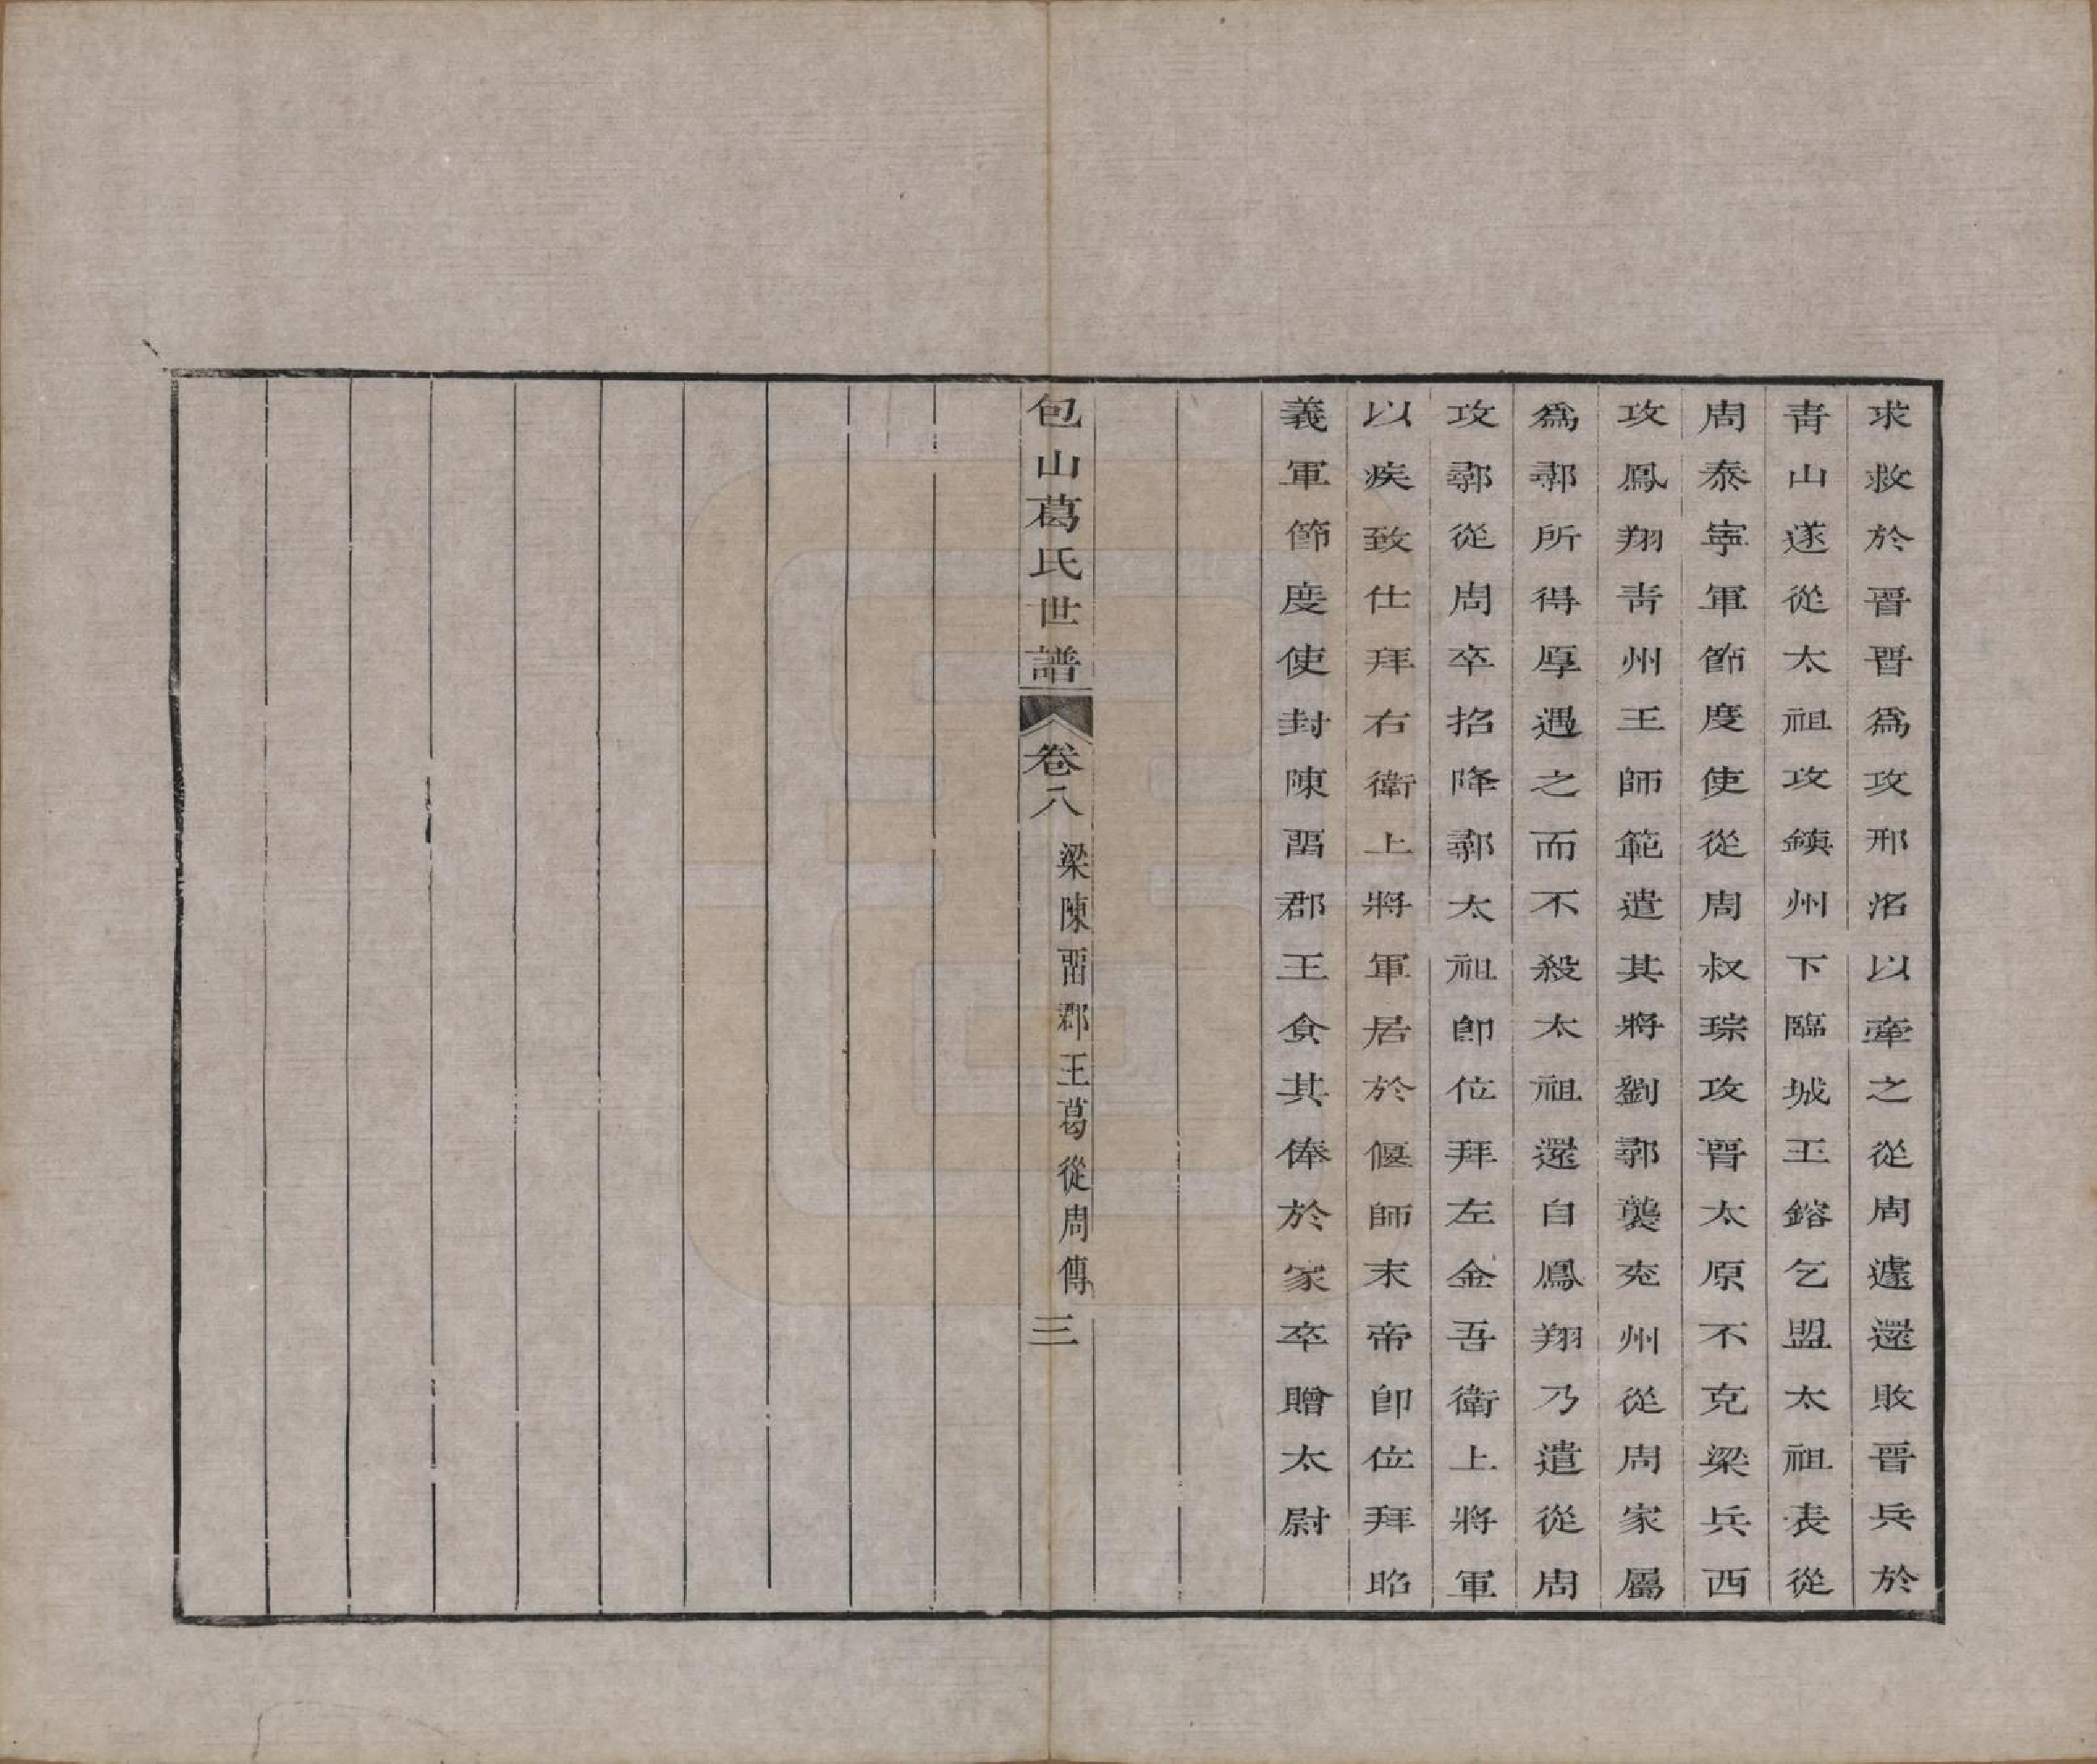 求救於晉晉爲攻邢洺以牽之從周遽還敗晉兵於
靑山遂從太祖攻鎮州下臨城王鎔乞盟太祖表從
周泰寧軍節度使從周叔琮攻晉太原不克梁兵西
攻鳳翔靑州王師範遣其將劉鄩襲兖州從周家屬
爲鄩所得厚遇之而不殺太祖還自鳳翔乃遣從周
攻鄩從周卒招降鄩太祖卽位拜左金吾衛上將軍
以疾致仕拜右衛上將軍居於偃師末帝卽位拜昭
義軍節度使封陳畱郡王食其俸於家卒贈太尉
包山葛氏世譜 卷八 梁陳畱郡王葛從周傳 三